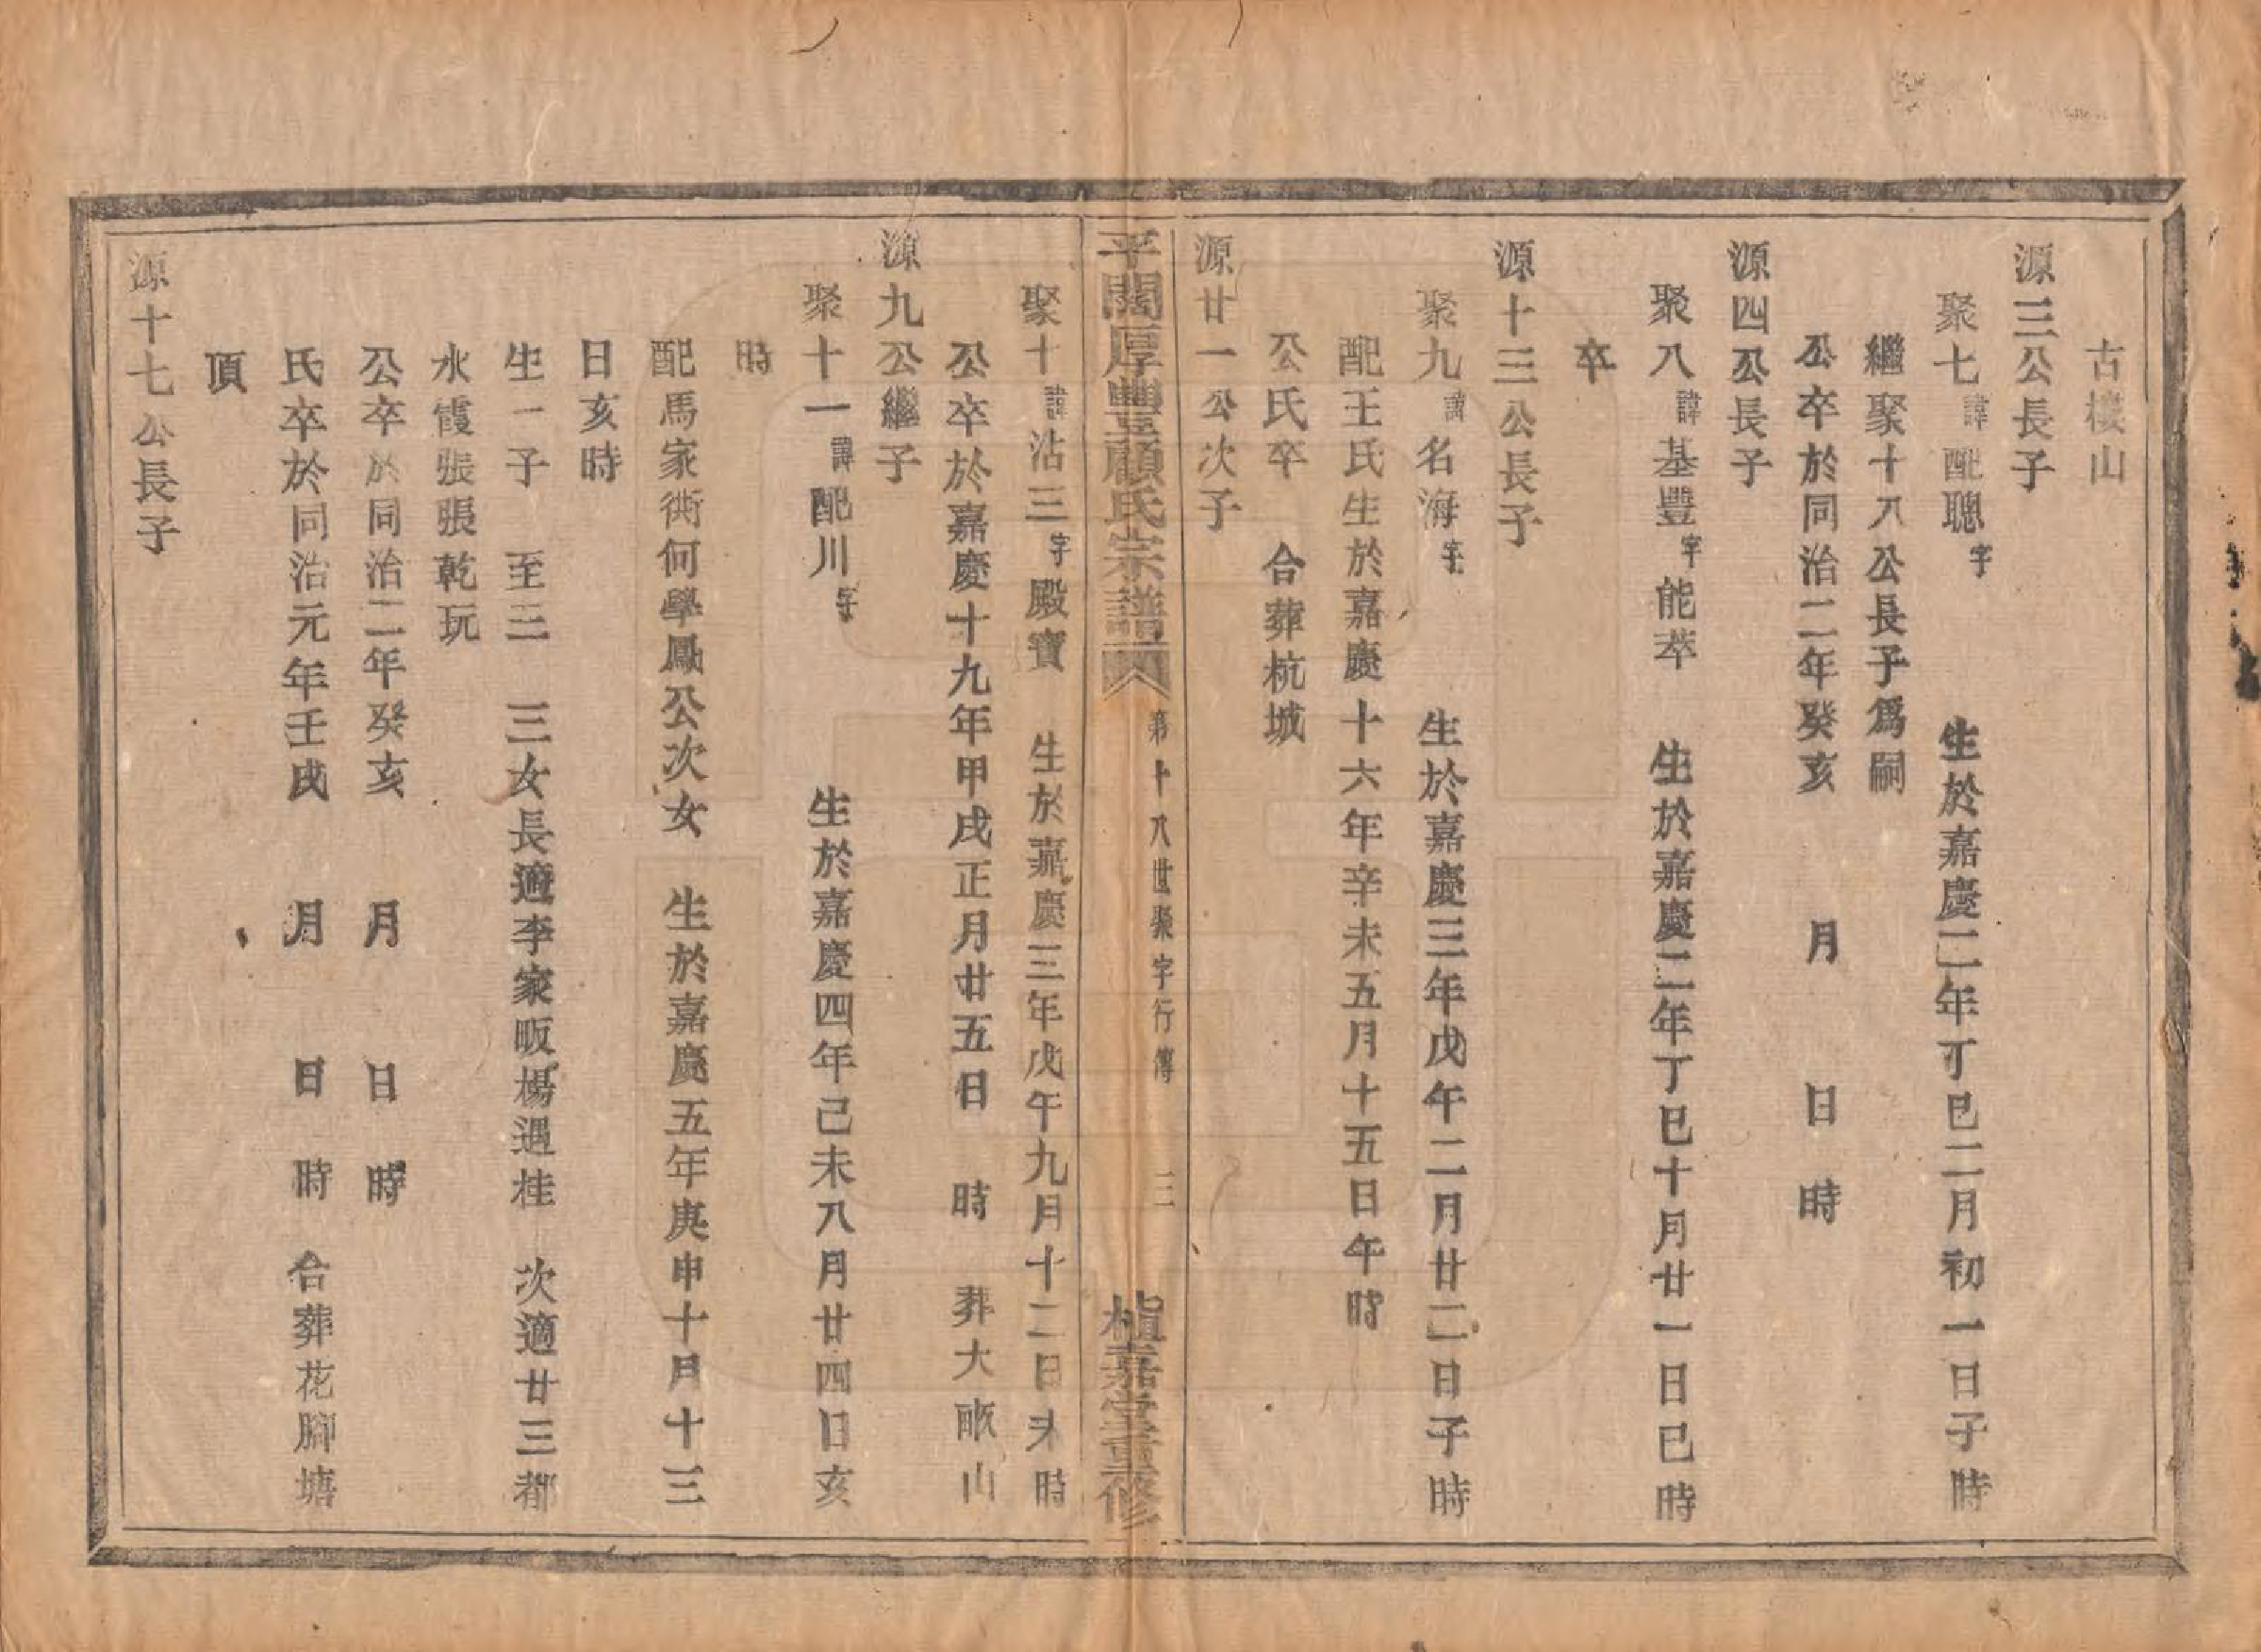 古樓山
源三公長子
聚七諱配聰字 生於嘉慶二年丁巳二月初一日子時
繼聚十八公長子為嗣
公卒於同治二年癸亥 月 日 時
源四公長子
聚八諱基豐字能萃 生於嘉慶二年丁巳十月廿一日巳時
卒
源十三公長子
聚九諱名海字 生於嘉慶三年戊午二月廿二日子時
配王氏生於嘉慶十六年辛未五月十五日午時
公氏卒 合葬杭城
源廿一公次子
平闊厚豐顧氏宗譜 第十八世聚字行傳 三 植嘉堂重修
聚十諱沾三字殿寶 生於嘉慶三年戊午九月十二日未時
公卒於嘉慶十九年甲戌正月廿五日 時 葬大畈山
源九公繼子
聚十一諱配川字 生於嘉慶四年己未八月廿四日亥
時
配馬家衖何學鳳公次女 生於嘉慶五年庚申十月十三
日亥時
生一子 至三 三女長適李家畈楊遇桂 次適廿三都
水霞張張乾玩
公卒於同治二年癸亥 月 日 時
氏卒於同治元年壬戌 月 日 時 合葬花腳塘
頂
源十七公長子